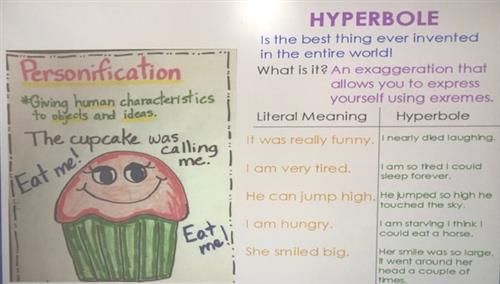 Personification
*Giving human characteristics
to objects and ideas.
The cupcake was
calling
me.
Eat me!
Eat
me!
HYPERBOLE
Is the best thing ever invented
in the entire world!
What is it? An exaggeration that
allows you to express
yourself using exremes.
Literal Meaning Hyperbole
It was really funny. I nearly died laughing.
I am very tired. I am so tired I could
sleep forever.
He can jump high. He jumped so high he
touched the sky.
I am hungry. I am starving I think I
could eat a horse.
She smiled big. Her smile was so large,
it went around her
head a couple of
times.